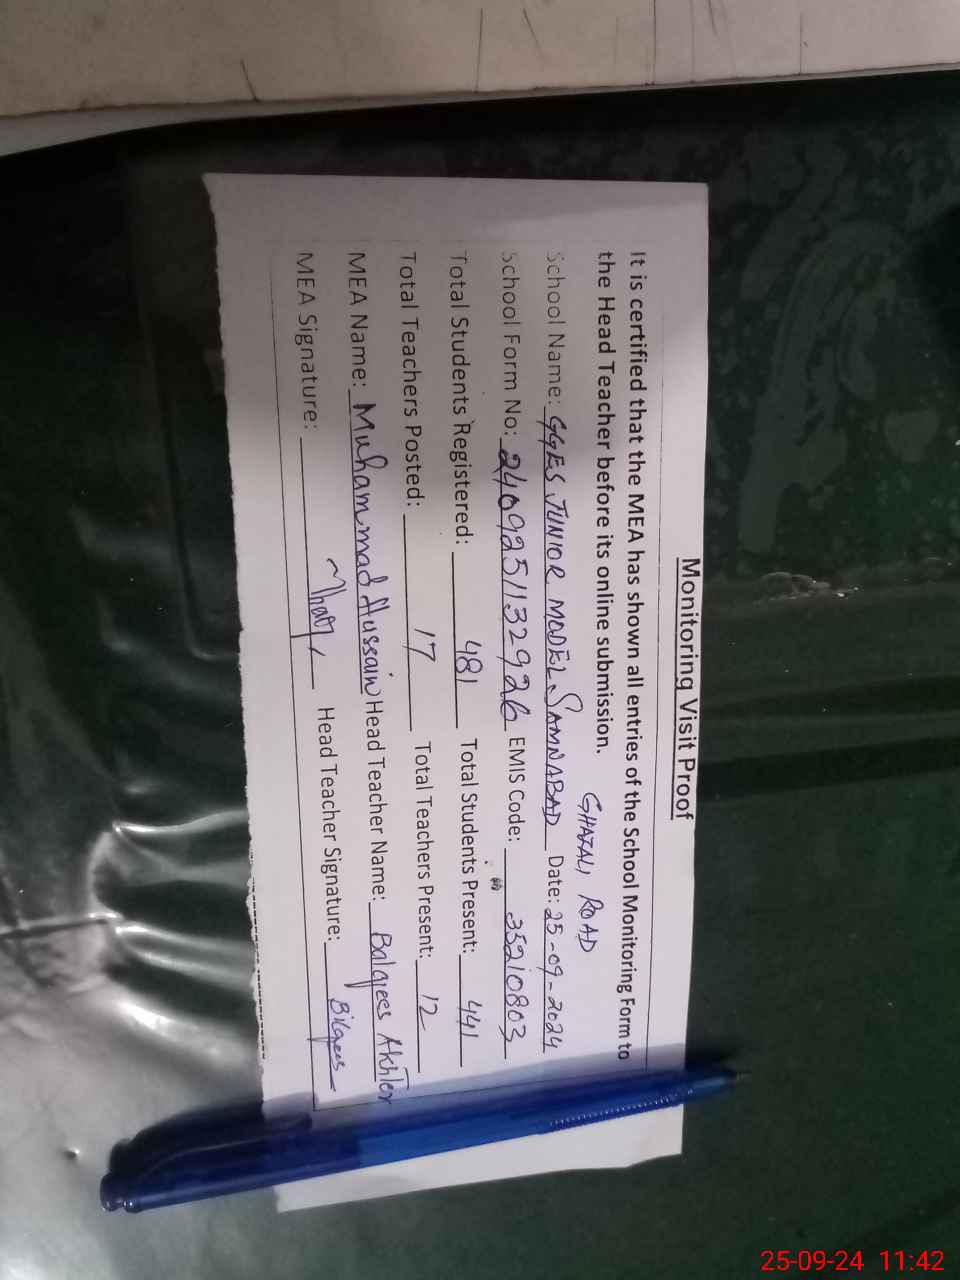 Monitoring Visit Proof
It is certified that the MEA has shown all entries of the School Monitoring Form to
the Head Teacher before its online submission.
GHAZALI ROAD
School Name: GGES JUNIOR MODEL SAMNABAD Date: 25-09-2024
School Form No: 2409251132926 EMIS Code: 35210803
Total Students Registered: 481 Total Students Present: 441
Total Teachers Posted: 17 Total Teachers Present: 12
MEA Name: Muhammad Hussain Head Teacher Name: Balqees Akhter
MEA Signature: Head Teacher Signature: Bilqees
25-09-24 11:42